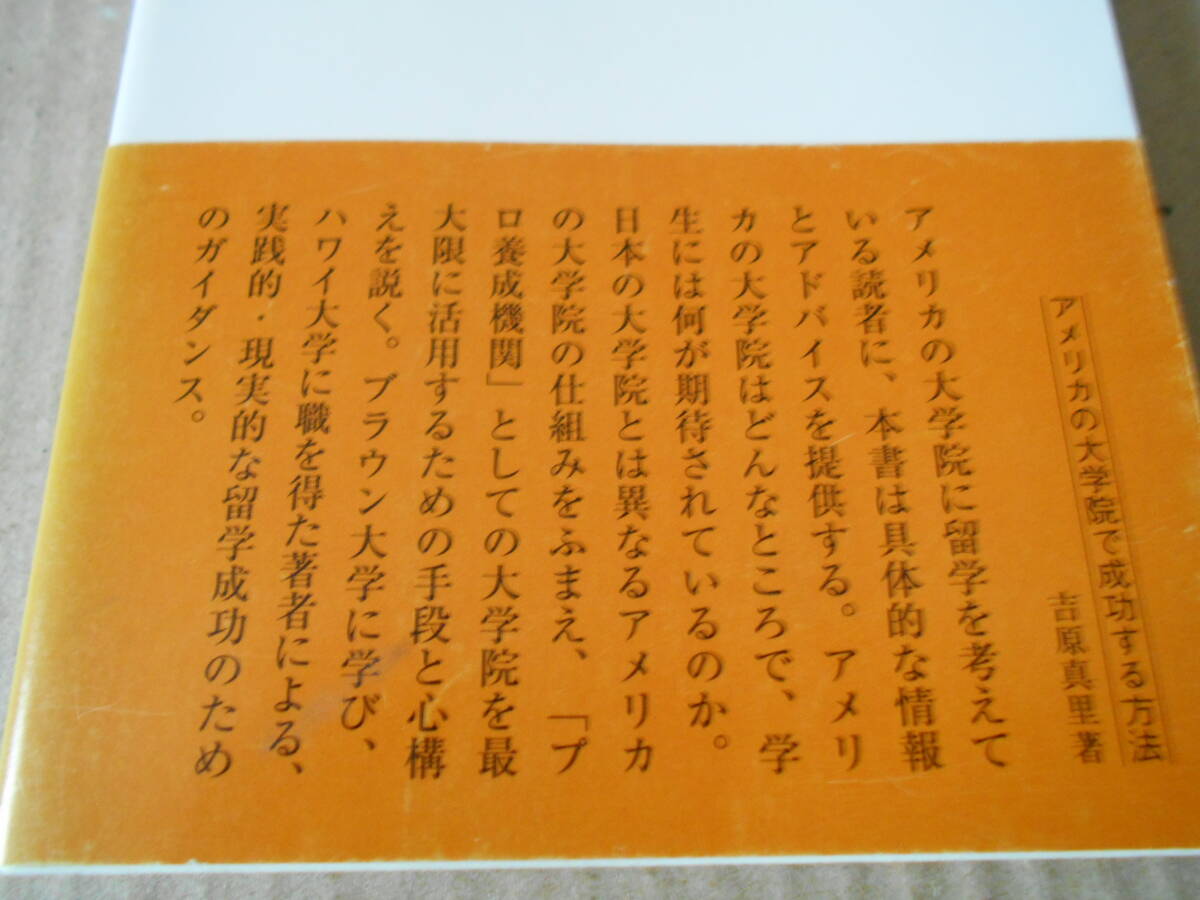 アメリカの大学院で成功する方法
吉原真里著
アメリカの大学院に留学を考えて
いる読者に、本書は具体的な情報
とアドバイスを提供する。アメリ
カの大学院はどんなところで、学
生には何が期待されているのか。
日本の大学院とは異なるアメリカ
の大学院の仕組みをふまえ、「プ
ロ養成機関」としての大学院を最
大限に活用するための手段と心構
えを説く。ブラウン大学に学び、
ハワイ大学に職を得た著者による、
実践的・現実的な留学成功のため
のガイダンス。